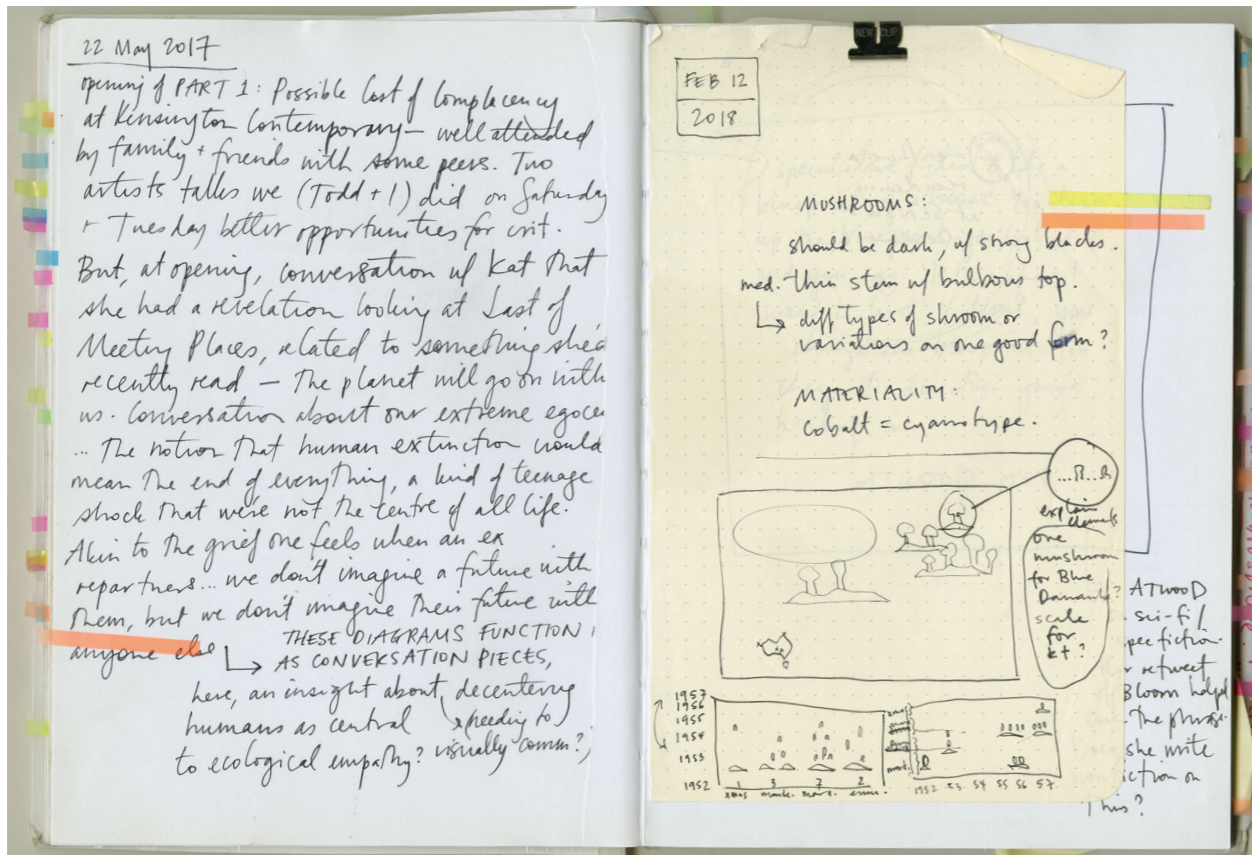 22 May 2017
opening of PART 1: Possible Cost of Complacency
at Kensington Contemporary — well attended
by family + friends with some peers. Two
artists talks we (Todd + I) did on Saturday
+ Tuesday better opportunities for crit.
But, at opening, conversation w/ Kat that
she had a revelation looking at Last of
Meeting Places, related to something she'd
recently read — The planet will go on with
us. Conversation about our extreme egoce
... The notion that human extinction would
mean the end of everything, a kind of teenage
shock that we're not the centre of all life.
Akin to the grief one feels when an ex
repartners... we don't imagine a future with
them, but we don't imagine their future with
anyone else
THESE DIAGRAMS FUNCTION
AS CONVERSATION PIECES,
here, an insight about decentering
humans as central (needing to
to ecological empathy? visually comm?)
NEW CLIP
FEB 12
2018
MUSHROOMS:
should be dark, w/ strong blacks.
med. thin stem w/ bulbous top.
diff types of shroom or
variations on one good form?
MATERIALITY:
cobalt = cyanotype.
explain
elements
one
mushroom
for Blue
Danube?
scale
for
kt?
1957
1956
1955
1954
1953
1952
1 3 7 2
1952 53 54 55 56 57
ATWOOD
sci-fi/
spec fiction
or retweet
Bloom helped
the phrase
she write
fiction on
this?